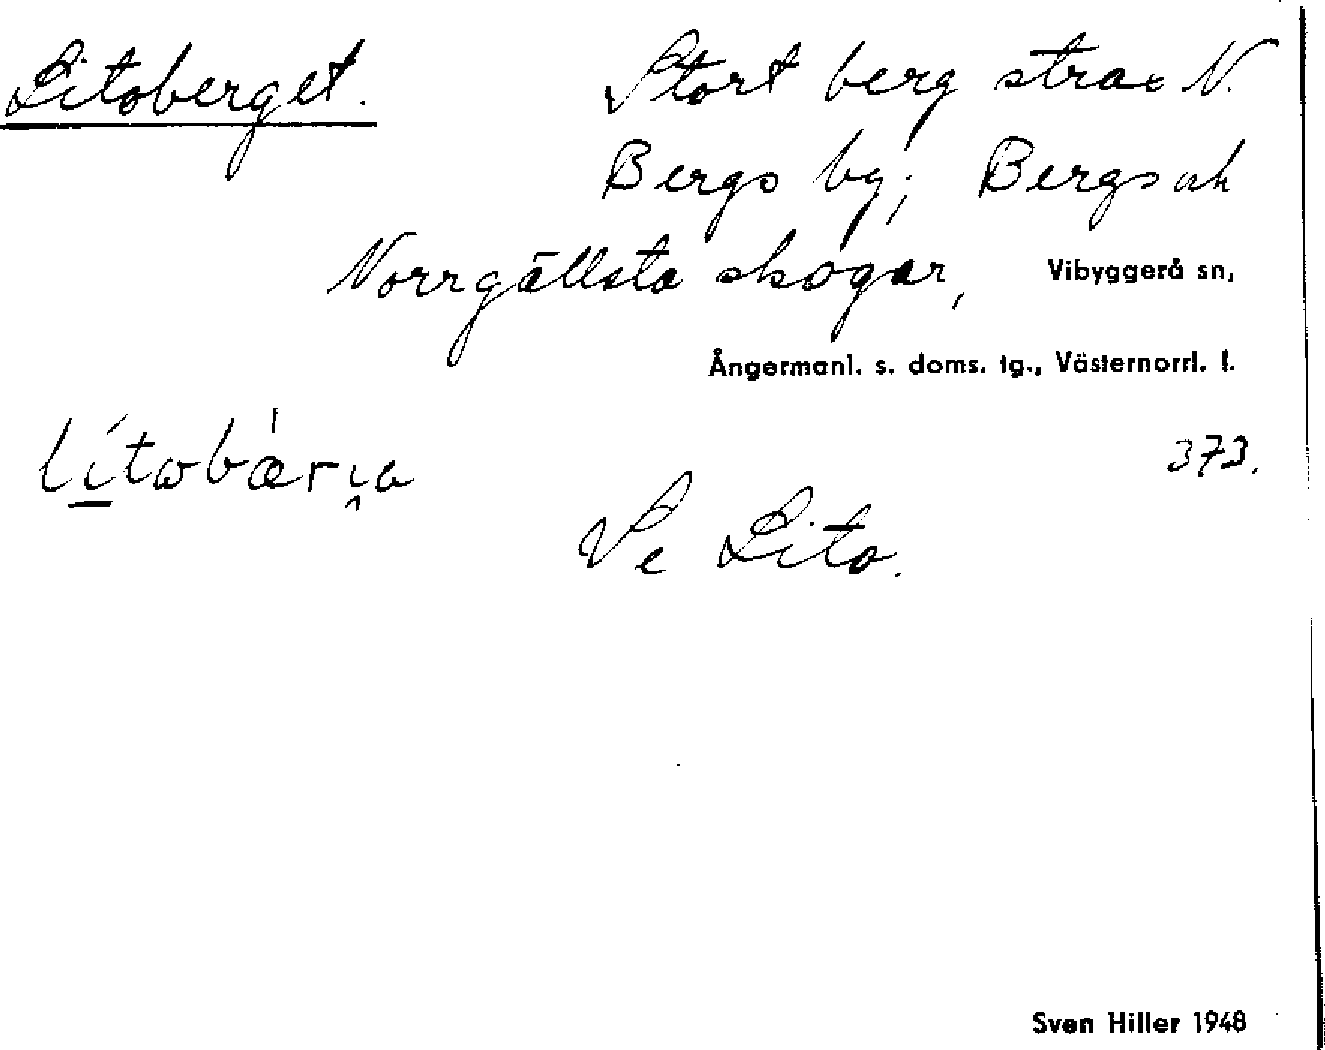 Litoberget. Stort berg strax N.
Bergs by; Bergs och
Norrgällsta skogar, Vibyggerå sn,
Ångermanl. s. doms. tg., Västernorrl. l.
373.
Se Lito.
Sven Hiller 1948